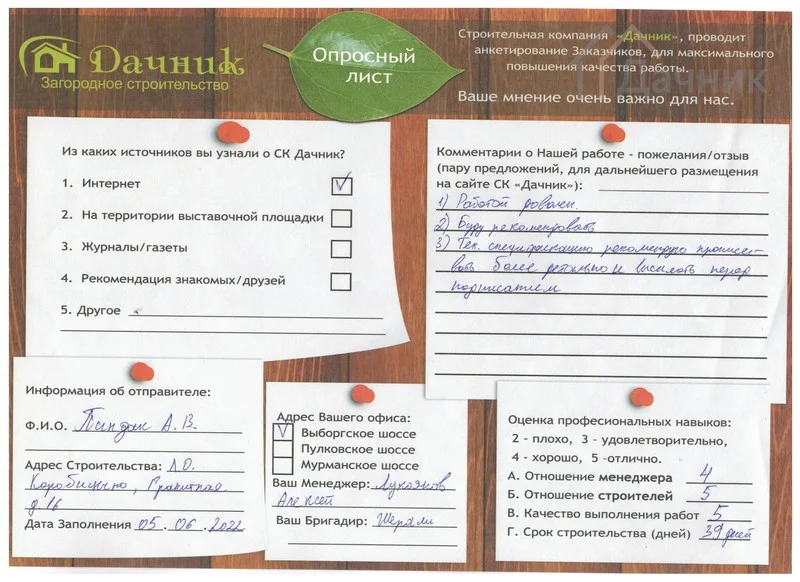 Дачник
Загородное строительство
Опросный
лист
Строительная компания «Дачник», проводит
анкетирование Заказчиков, для максимального
повышения качества работы.
Дачник
Ваше мнение очень важно для нас.
Из каких источников вы узнали о СК Дачник?
1. Интернет
2. На территории выставочной площадки
3. Журналы/газеты
4. Рекомендация знакомых/друзей
5. Другое
Комментарии о Нашей работе - пожелания/отзыв
(пару предложений, для дальнейшего размещения
на сайте СК «Дачник»):
1) Работой доволен.
2) Буду рекомендовать
3) Тех. спецификацию рекомендую прописы-
вать более детально и высылать перед
подписанием
Информация об отправителе:
Ф.И.О. А.В.
Адрес Строительства: Л.О.
Коробицыно, Гранитная
д 16
Дата Заполнения 05.06.2022
Адрес Вашего офиса:
Выборгское шоссе
Пулковское шоссе
Мурманское шоссе
Ваш Менеджер: Лукоянов
Алексей
Ваш Бригадир: Шерали
Оценка профессиональных навыков:
2 - плохо, 3 - удовлетворительно,
4 - хорошо, 5 -отлично.
А. Отношение менеджера 4
Б. Отношение строителей 5
В. Качество выполнения работ 5
Г. Срок строительства (дней) 39 дней